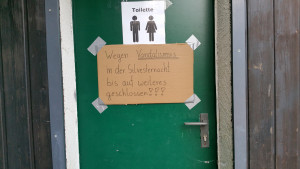 Toilette
Wegen Vandalismus
in der Silvesternacht
bis auf weiteres
geschlossen!!!